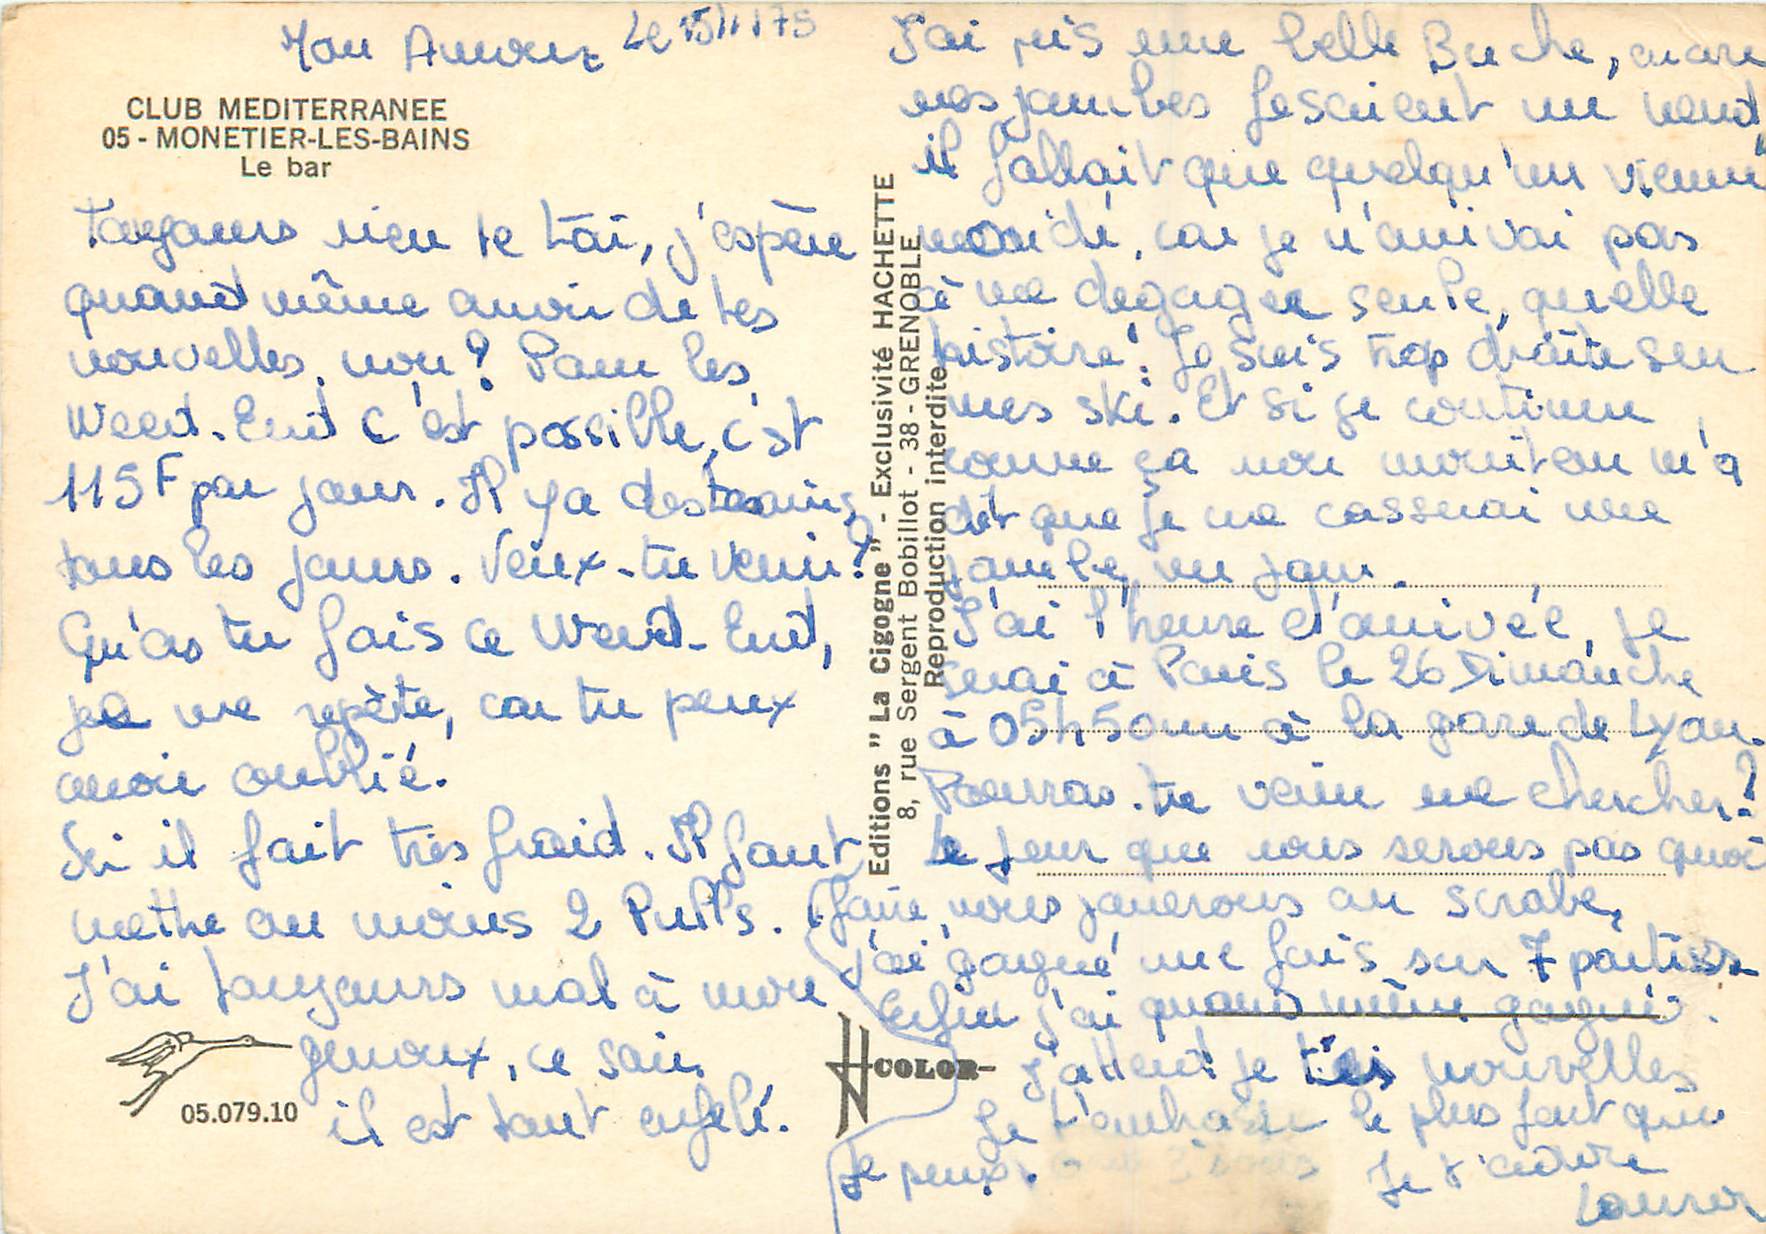 Mon Amour Le 15/1/75
CLUB MEDITERRANEE
05 - MONETIER-LES-BAINS
Le bar
Toujours rien de toi, j'espère
quand même avoir de tes
nouvelles, non ? Pour les
Week-End c'est possible, c'st
115F par jour. Il y a des trains
tous les jours. Veux-tu venir ?
Qu'as tu fais ce Week-End,
je me repète, car tu peux
avoir oublié.
Ici il fait très froid. Il faut
mettre au moins 2 Pulls.
J'ai toujours mal à mon
genoux, ce soir
il est tout enflé.
05.079.10
Editions " La Cigogne " - Exclusivité HACHETTE
8, rue Sergent Bobillot - 38 - GRENOBLE
Reproduction interdite
COLOR
J'ai pris une belle Buche, encore
mes jambes fesaient un nœud,
il fallait que quelqu'un vienne
m'aidé, car je n'arrivai pas
à me degager seule, quelle
histoire ! Je suis trop droite sur
mes ski. Et si je continue
comme ça mon moniteur m'a
dit que je me casserai une
jambe, un jour.
J'ai l'heure d'arrivée, je
serai à Paris le 26 Dimanche
à 05h50mn à la gare de Lyon.
Pourras-tu venir me chercher ?
Le jour que nous serons pas quoi
faire, nous jouerons au scrabe,
j'ai gagné une fois sur 7 parties
Enfin j'ai quand même gagné.
J'attend je tes nouvelles
Je t'embrasse le plus fort que
je peux.
Je t'adore